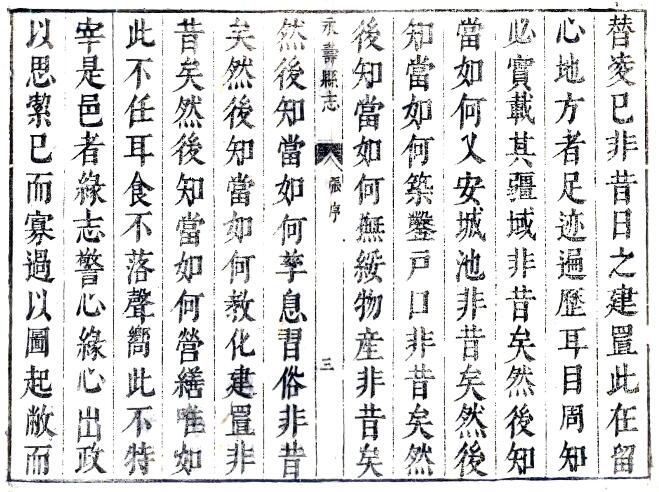 替凌已非昔日之建置此在留
心地方者足迹遍歷耳目周知
必實載其疆域非昔矣然後知
當如何乂安城池非昔矣然後
知當如何築鑿戸口非昔矣然
後知當如何撫綏物産非昔矣
永壽縣志 張序 三
然後知當如何孳息習俗非昔
矣然後知當如何教化建置非
昔矣然後知當如何營繕唯如
此不任耳食不落聲嚮此不特
宰是邑者緣志警心緣心出政
以思潔已而寡過以圖起敝而